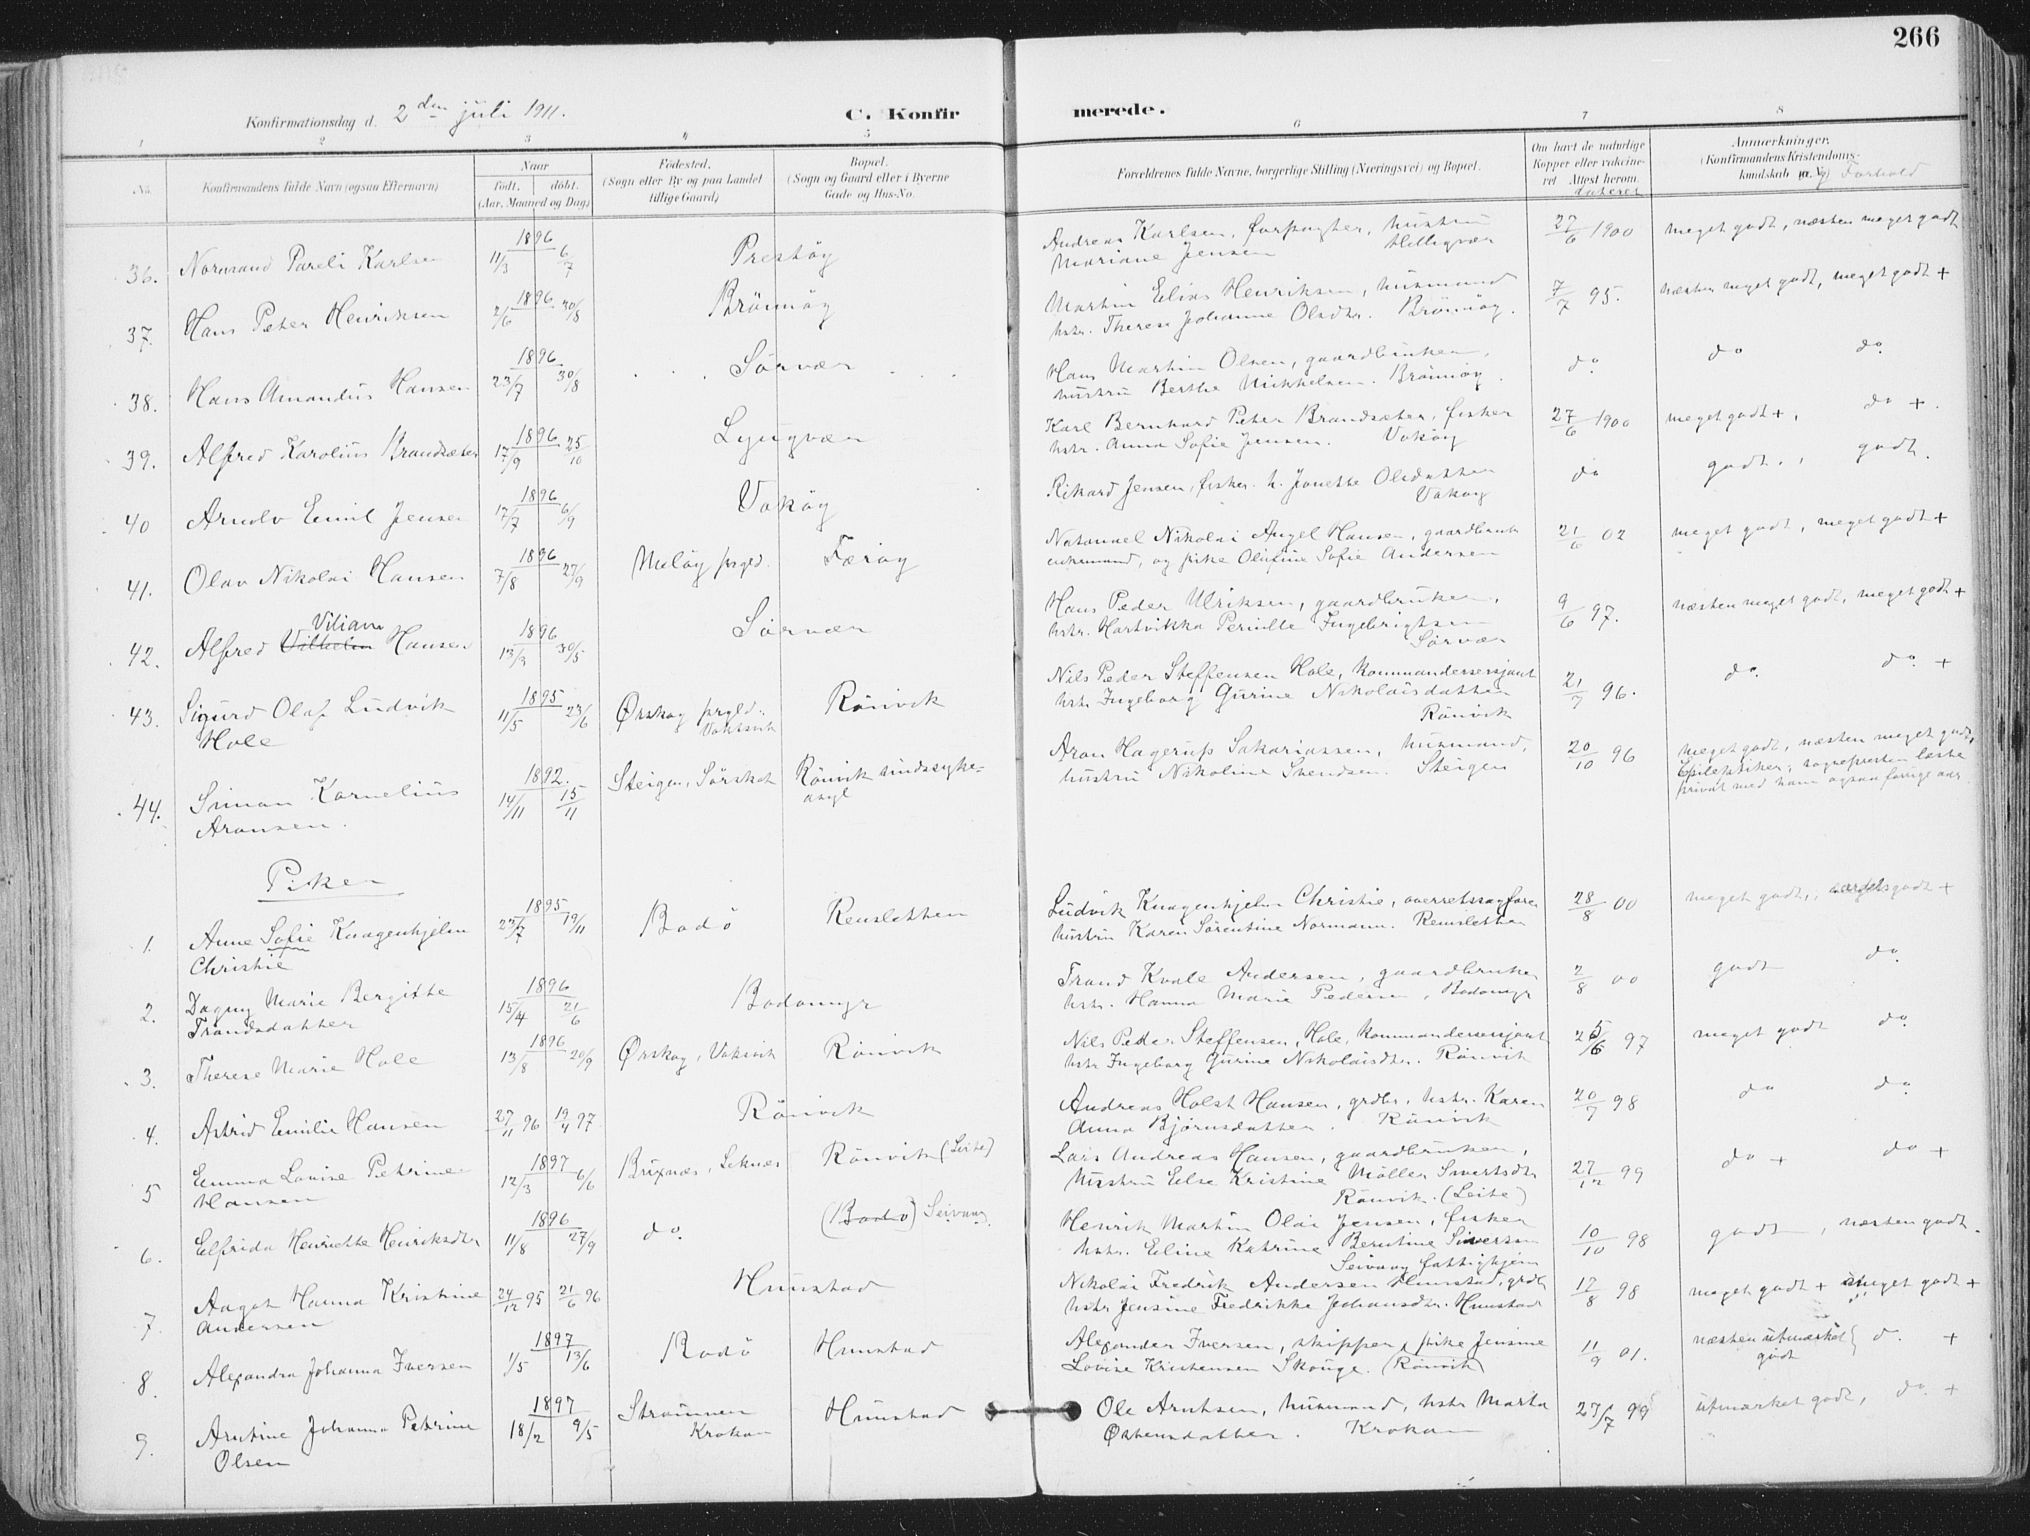 266
Konfirmationsdag d. 2den juli 1911.
C. Konfirmerede.
1 2 3 4 5 6 7 8
No.
Konfirmandens fulde Navn (ogsaa Efternavn)
Naar
Født. døbt.
(Aar, Maaned og Dag)
Fødested.
(Sogn eller By og paa Landet
tillige Gaard)
Bopæl.
(Sogn og Gaard eller i Byerne
Gade og Hus-No.
Forældrenes fulde Navne, borgerlige Stilling (Næringsvei) og Bopæl.
Om havt de naturlige
Kopper eller vaccine-
ret Attest herom
dateret
Anmerkninger.
(Konfirmandens Kristendoms-
kundskab og Forhold
36. Normand Pareli Karlsen 1896 11/3 6/7 Prestøy
Andreas Karlsen, forpagter, hustru
Mariane Jensen Helligvær
27/6 1900 meget godt, næsten meget godt
37. Hans Peter Henriksen 1896 2/6 30/8 Brönnöy
Martin Elias Henriksen, husmand
hstr. Therese Johanne Olsdtr. Brönnöy.
7/7 95. næsten meget godt, meget godt +
38. Hans Amandus Hansen 1896 23/7 30/8 Sørvær
Hans Martin Olsen, gaardbruker,
hustru Berthe Mikkelsen. Brönnöy.
do do do.
39. Alfred Karolius Brandsæter 1896 17/9 25/10 Lyngvær
Karl Bernhard Peter Brandsæter, fisker
hstr. Anna Sofie Jensen. Vokøy
27/6 1900 meget godt +, do +.
40 Arnolv Emil Jensen 1896 17/7 6/9 Vokøy
Rikard Jensen, fisker. h. Janette Olsdatter
Vokøy
do godt., godt.
41. Olav Nikolai Hansen 1896 7/8 27/9 Meløy prgld. Færöy
Natanael Nikolai Angel Hansen, gaardbruker
enkemand, og pike Olufine Sofie Andersen
21/6 02 meget godt, meget godt +
Viliam
42. Alfred Vilhelm Hansen 1896 13/3 30/5 Sørvær
Hans Peder Ulriksen, gaardbruker,
hstr. Hartvikka Pernille Ingebrigtsen
Sørvær
9/6 97. næsten meget godt, meget godt +
43. Sigurd Olaf Ludvik
Hole
1895 11/5 23/6 Ørskog prgld. Rönvik
Nils Peder Steffensen Hole, kommandersersjant
hstr. Ingeborg Gurine Nikolaisdatter
Rönvik
21/7 96. do. do. +
44. Simon Kornelius
Aronsen.
1892. 14/11 15/11 Steigen, Sørskot Rönvik sindssyke-
asyl
Aron Hagerup Sakariassen, husmand,
hustru Nikoline Svendsen. Steigen
20/10 96 meget godt, næsten meget godt,
Epileptiker; sognepresten læste
privat med ham ogsaa forrige aar
Piker
1. Anne Sofie Knagenhjelm
Christie
1895 23/7 19/11 Bodø Rensletten
Ludvik Knagenhjelm Christie, overretssagfører
hustru Karen Sörentine Normann. Rensletten
28/8 00 meget godt, godt +
2. Dagny Marie Bergitte
Trondsdatter
1896 15/4 21/6 Bodømyr
Trond Kvale Andersen, gaardbruker
hstr. Hanna Marie Pedersen, Bodømyr
2/8 00 godt do.
3. Therese Marie Hole 1896 13/8 20/9 Ørskog, Rönvik
Nils Peder Steffensen, Hole, kommandersersjant
hstr Ingeborg Gurine Nikolaisdtr. Rönvik
25/6 97 meget godt do.
4. Astrid Emilie Hansen 27/11 96 19/4 97 Rönvik
Andreas Holst Hansen, grdbr., hstr. Karen
Anna Bjørnsdatter. Rönvik
20/7 98 do do.
5 Emma Lovise Petrine
Hansen
1897 12/3 6/6 Buxnæs, Leknæs Rönvik (Leite)
Lars Andreas Hansen, gaardbruker,
hustru Else Kristine Møller Sivertsdtr
Rönvik. (Leite)
27/12 99 do + do +
6. Elfrida Henriette Henriksdtr 1896 11/8 27/9 do. (Bodø) Seivaag.
Henrik Martin Olai Jensen, fisker
hstr. Eline Katrine Berntine Siversen
Seivaag fattighjem
10/10 98 godt, næsten godt.
7. Aagot Hanna Kristine
Andersen
24/12 95 21/6 96 Hunstad
Nikolai Fredrik Andersen Hunstad, grdbr
hstr Jensine Fredrikke Johansdtr. Hunstad
12/8 98 meget godt + meget godt +
8. Alexandra Johanna Iversen 1897 1/5 13/6 Bodø Hunstad
Alexander Iversen, skipper, pike Jensine
Lovise Kristensen Skauge. (Rönvik)
11/9 01. næsten utmerket
godt
d. +
9. Arntine Johanna Petrine
Olsen
1897 18/2 9/5 Strømmen
Krokan
Hunstad
Ole Arntsen, husmand, hstr Marta
Østensdatter. Krokan
27/7 99 utmærket godt, do. +